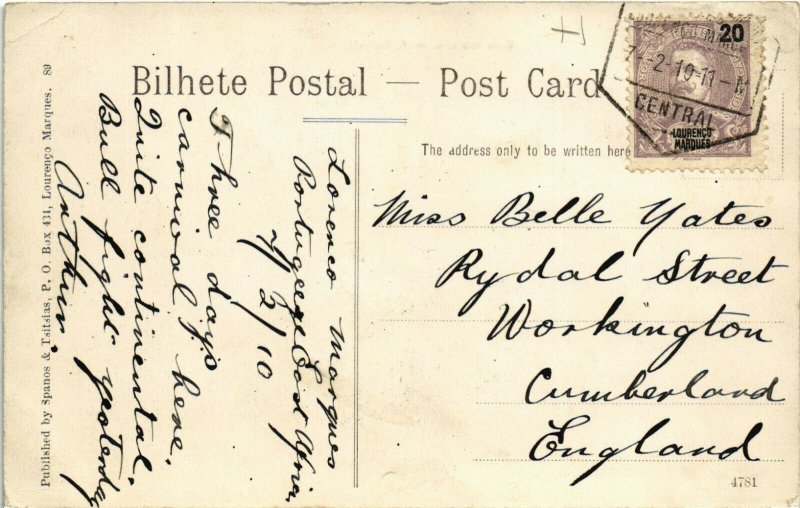 Bilhete Postal — Post Card
The address only to be written here
20
LOURENÇO
MARQUES
7-2-10-11-M
CENTRAL
Lorenco Marques
Portugeese East Africa.
7/2/10
Three days
carnival here.
Quite continental.
Bull fight yesterday
Arthur.
Miss Belle Yates
Rydal Street
Workington
Cumberland
England
Published by Spanos & Tsitsias, P. O. Box 434, Lourenço Marques. 89
4781